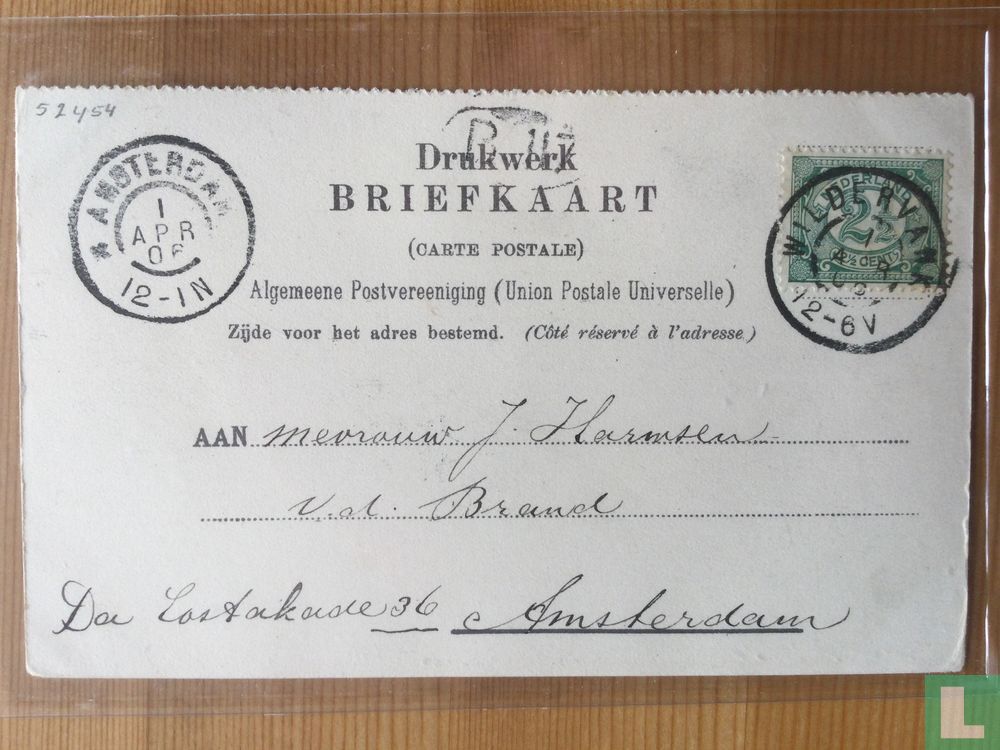 52454
Drukwerk
BRIEFKAART
(CARTE POSTALE)
Algemeene Postvereeniging (Union Postale Universelle)
Zijde voor het adres bestemd. (Côté réservé à l'adresse)
AMSTERDAM
1
APR
06
12-1N
NEDERLAND
2½
2½ CENT
WILDERVANK
12-6V
AAN mevrouw J. Harmsen-
v.d. Brand
Da Costakade 36 Amsterdam
L